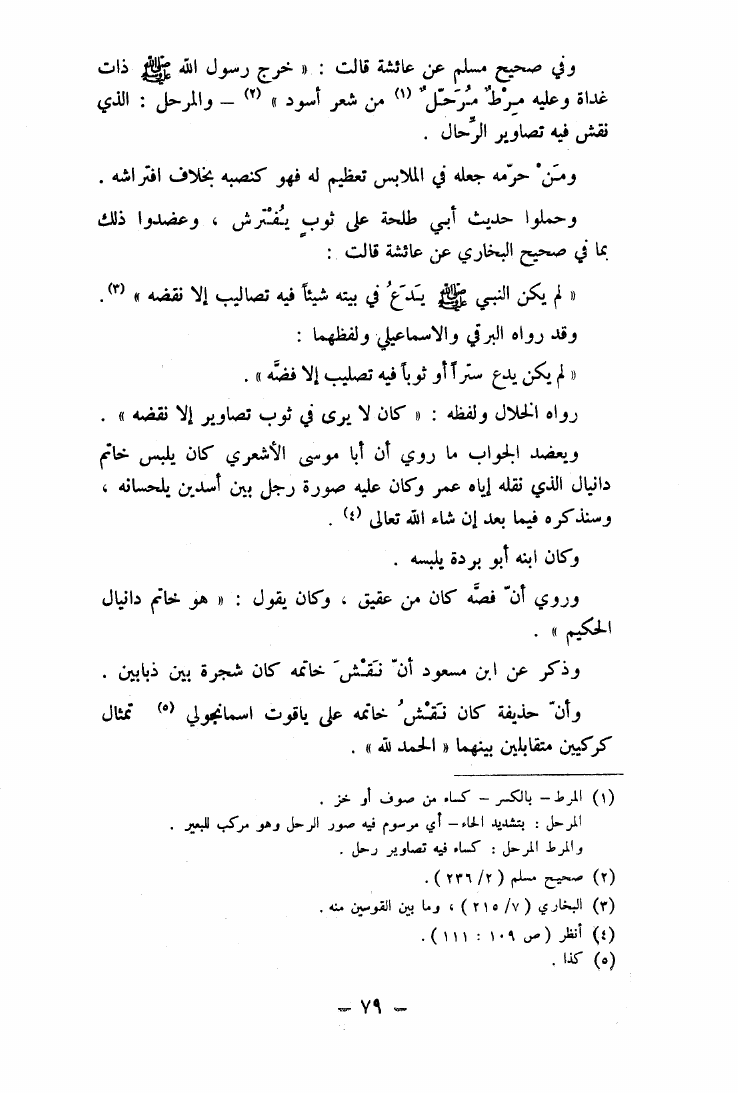 وفي صحيح مسلم عن عائشة قالت : « خرج رسول الله ﷺ ذات
غداة وعليه مِرْطٌ مُرَحّلٌ (١) من شعر أسود » (٢) – والمرحل : الذي
نقش فيه تصاوير الرِّحال .
ومَنْ حرّمه جعله في الملابس تعظيم له فهو كنصبه بخلاف افتراشه .
وحملوا حديث أبي طلحة على ثوبٍ يُفْتَرش ، وعضدوا ذلك
بما في صحيح البخاري عن عائشة قالت :
« لم يكن النبي ﷺ يَدَعُ في بيته شيئاً فيه تصاليب إلا نقضه » (٣).
وقد رواه البرقي والاسماعيلي ولفظهما :
« لم يكن يدع ستراً أو ثوباً فيه تصليب إلا فضَّه » .
رواه الخلال ولفظه : « كان لا يرى في ثوب تصاوير إلا نقضه » .
ويعضد الجواب ما روي أن أبا موسى الأشعري كان يلبس خاتم
دانيال الذي نقله إياه عمر وكان عليه صورة رجل بين أسدين يلحسانه ،
وسنذكره فيما بعد إن شاء الله تعالى (٤) .
وكان ابنه أبو بردة يلبسه .
وروي أنّ فصَّه كان من عقيق ، وكان يقول : « هو خاتم دانيال
الحكيم » .
وذكر عن ابن مسعود أنّ نَقْشَ خاتمه كان شجرة بين ذبابين .
وأنّ حذيفة كان نَقْشُ خاتمه على ياقوت اسمانجولي (٥) تمثال
كركيين متقابلين بينهما « الحمد لله » .
(١) المرط – بالكسر – كساء من صوف أو خز .
المرحل : بتشديد الحاء – أي مرسوم فيه صور الرحل وهو مركب للبعير .
والمرط المرحل : كساء فيه تصاوير رحل .
(٢) صحيح مسلم ( ٢/ ٢٣٦ ) .
(٣) البخاري ( ٧/ ٢١٥ ) ، وما بين القوسين منه .
(٤) أنظر ( ص ١٠٩ : ١١١ ) .
(٥) كذا .
– ٧٩ –